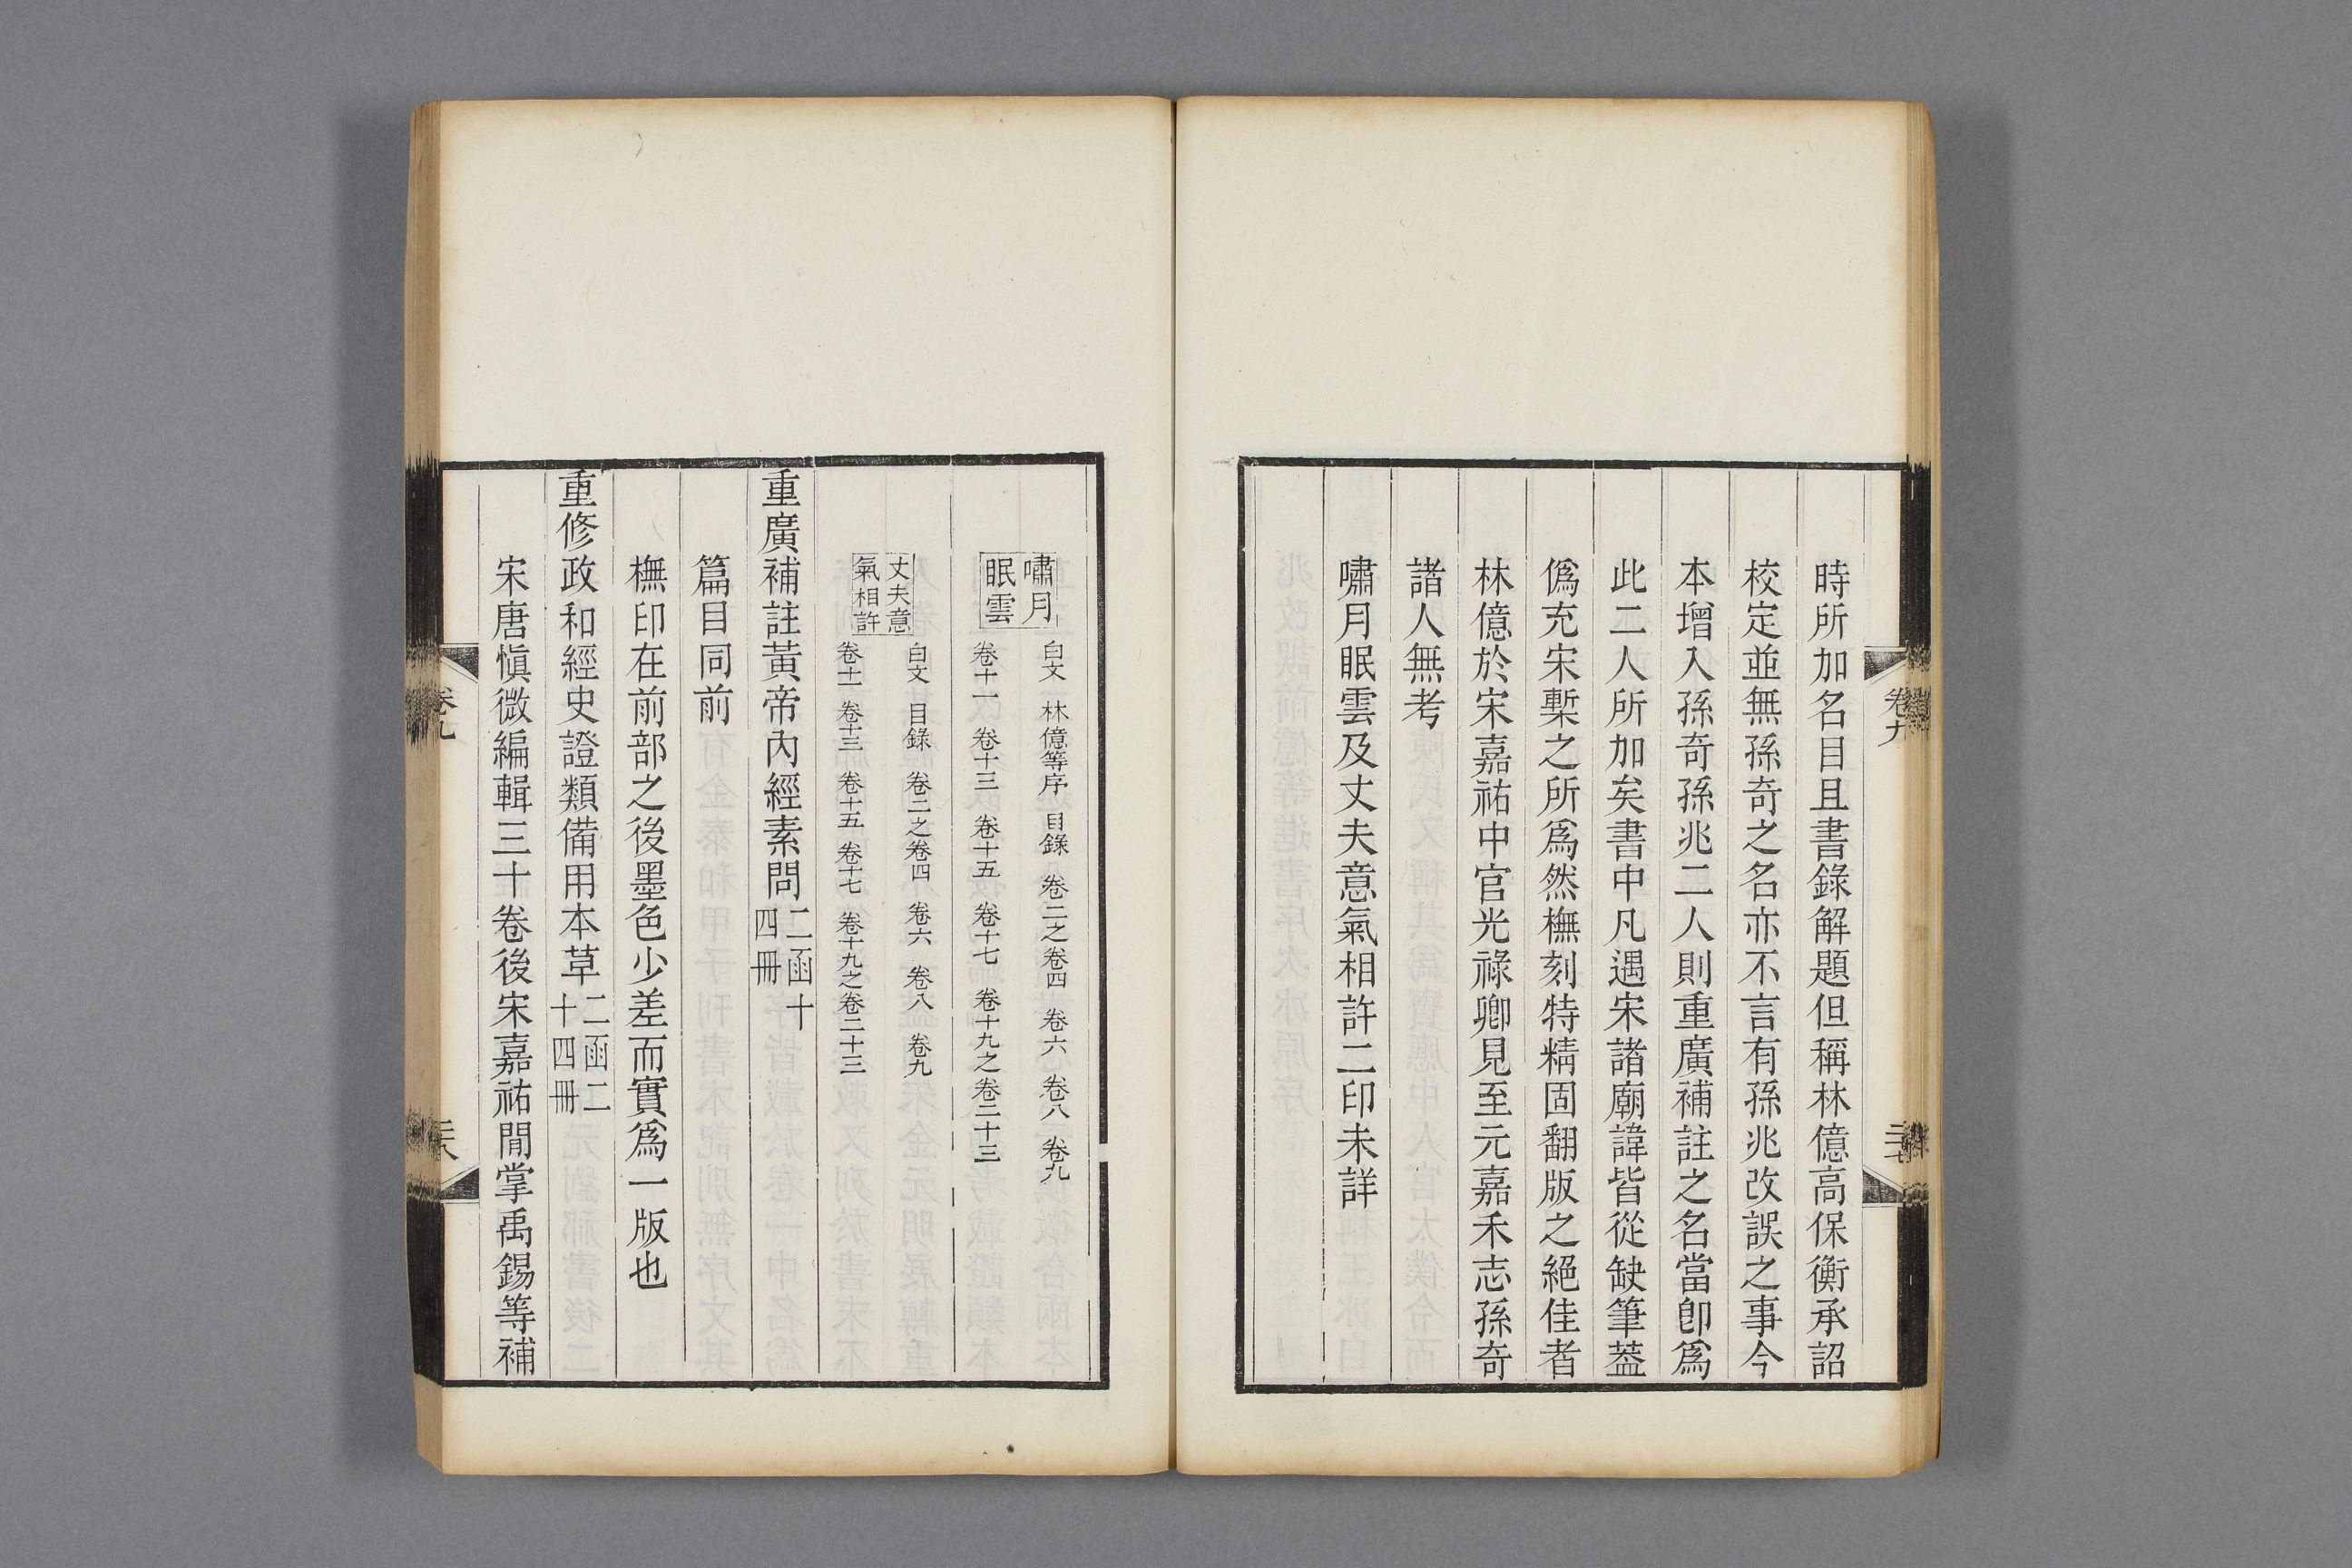 時所加名目且書錄解題但稱林億高保衡承詔
校定並無孫奇之名亦不言有孫兆改誤之事今
本增入孫奇孫兆二人則重廣補註之名當卽爲
此二人所加矣書中凡遇宋諸廟諱皆從缺筆蓋
僞充宋槧之所爲然橅刻特精固翻版之絕佳者
林億於宋嘉祐中官光祿卿見至元嘉禾志孫奇
諸人無考
嘯月眠雲及丈夫意氣相許二印未詳
卷九
嘯月
眠雲
白文 林億等序 目錄 卷二之卷四 卷六 卷八 卷九
卷十一 卷十三 卷十五 卷十七 卷十九之卷二十三
丈夫意
氣相許
白文 目錄 卷二之卷四 卷六 卷八 卷九
卷十一 卷十三 卷十五 卷十七 卷十九之卷二十三
重廣補註黃帝內經素問 二函十
四冊
篇目同前
橅印在前部之後墨色少差而實爲一版也
重修政和經史證類備用本草 二函二
十四冊
宋唐愼微編輯三十卷後宋嘉祐閒掌禹錫等補
卷九